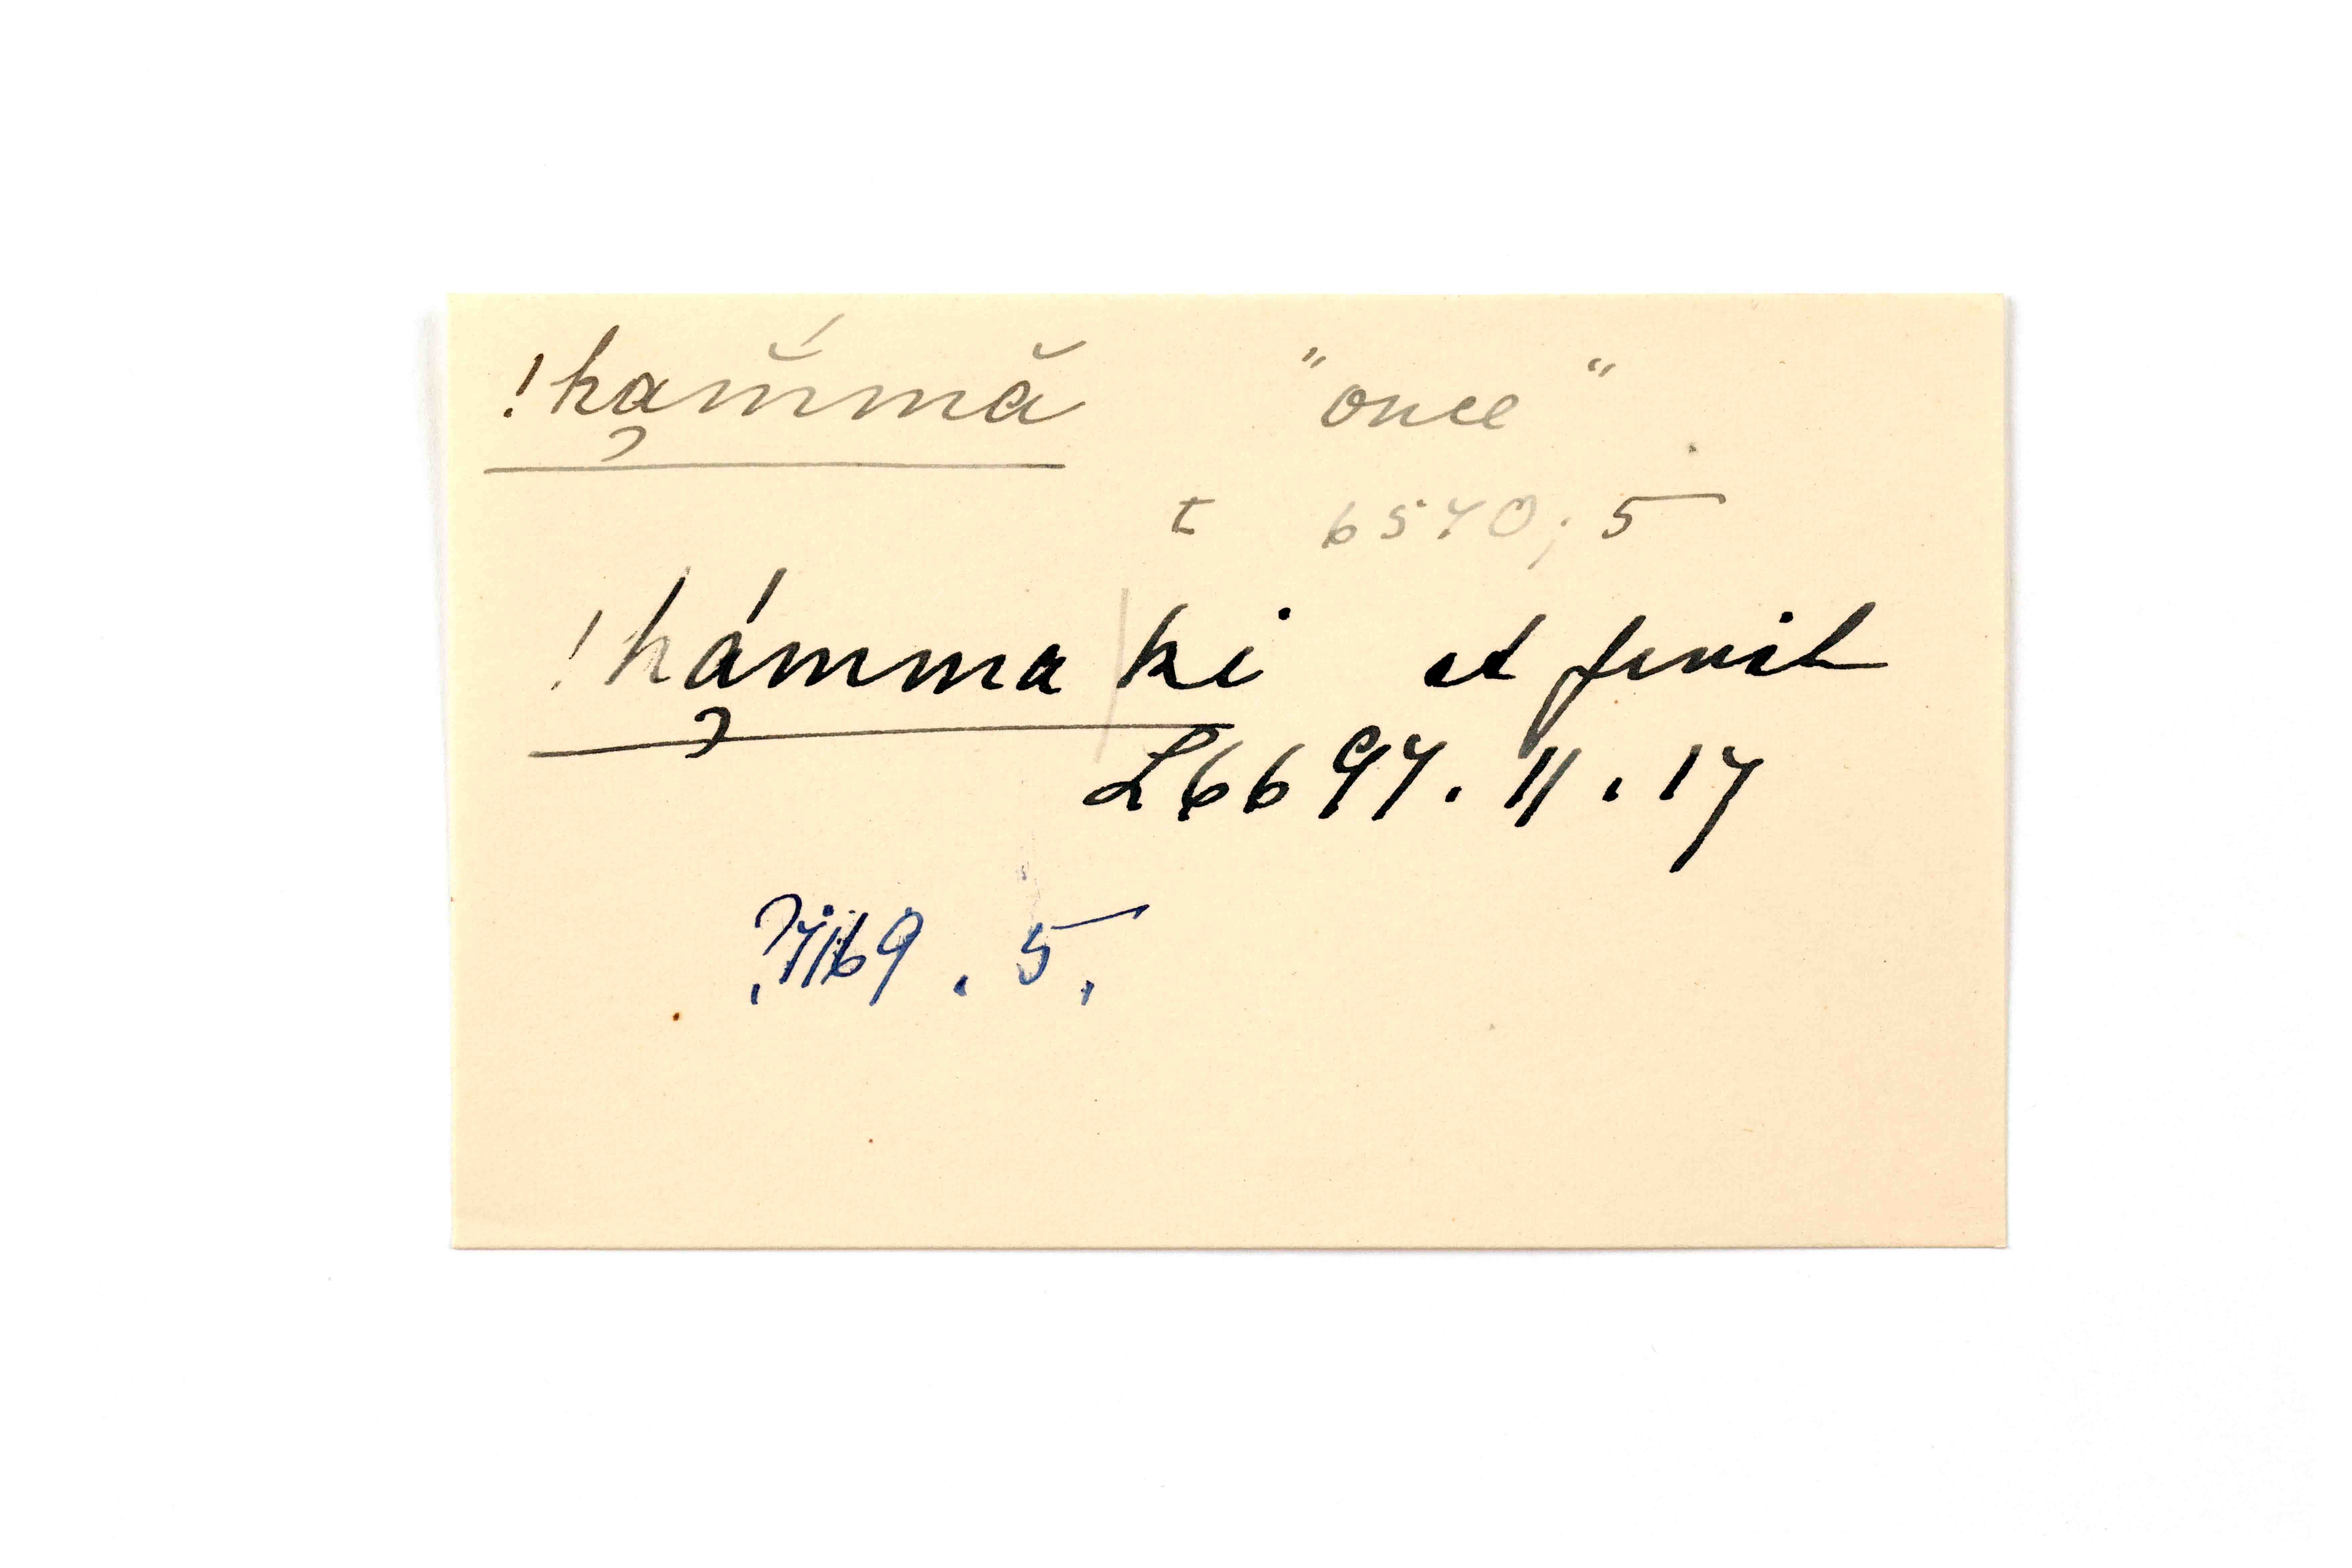 !ha̦m̆́mă "once"
t 6570; 5
!há̦mma|ki at finil
L6697. 11. 17
?7169. 5.